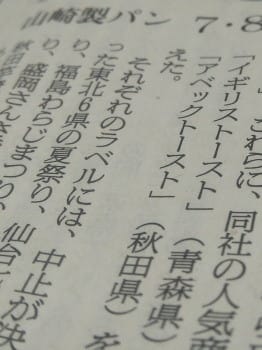 山崎製パン 7・8
これらに、同社の人気商
「イギリストースト」（青森県）
「アベックトースト」（秋田県）を
えた。
それぞれのラベルには、中止が決
った東北6県の夏祭り、
り、福島わらじまつり、仙台
り、盛岡さんさ
秋田